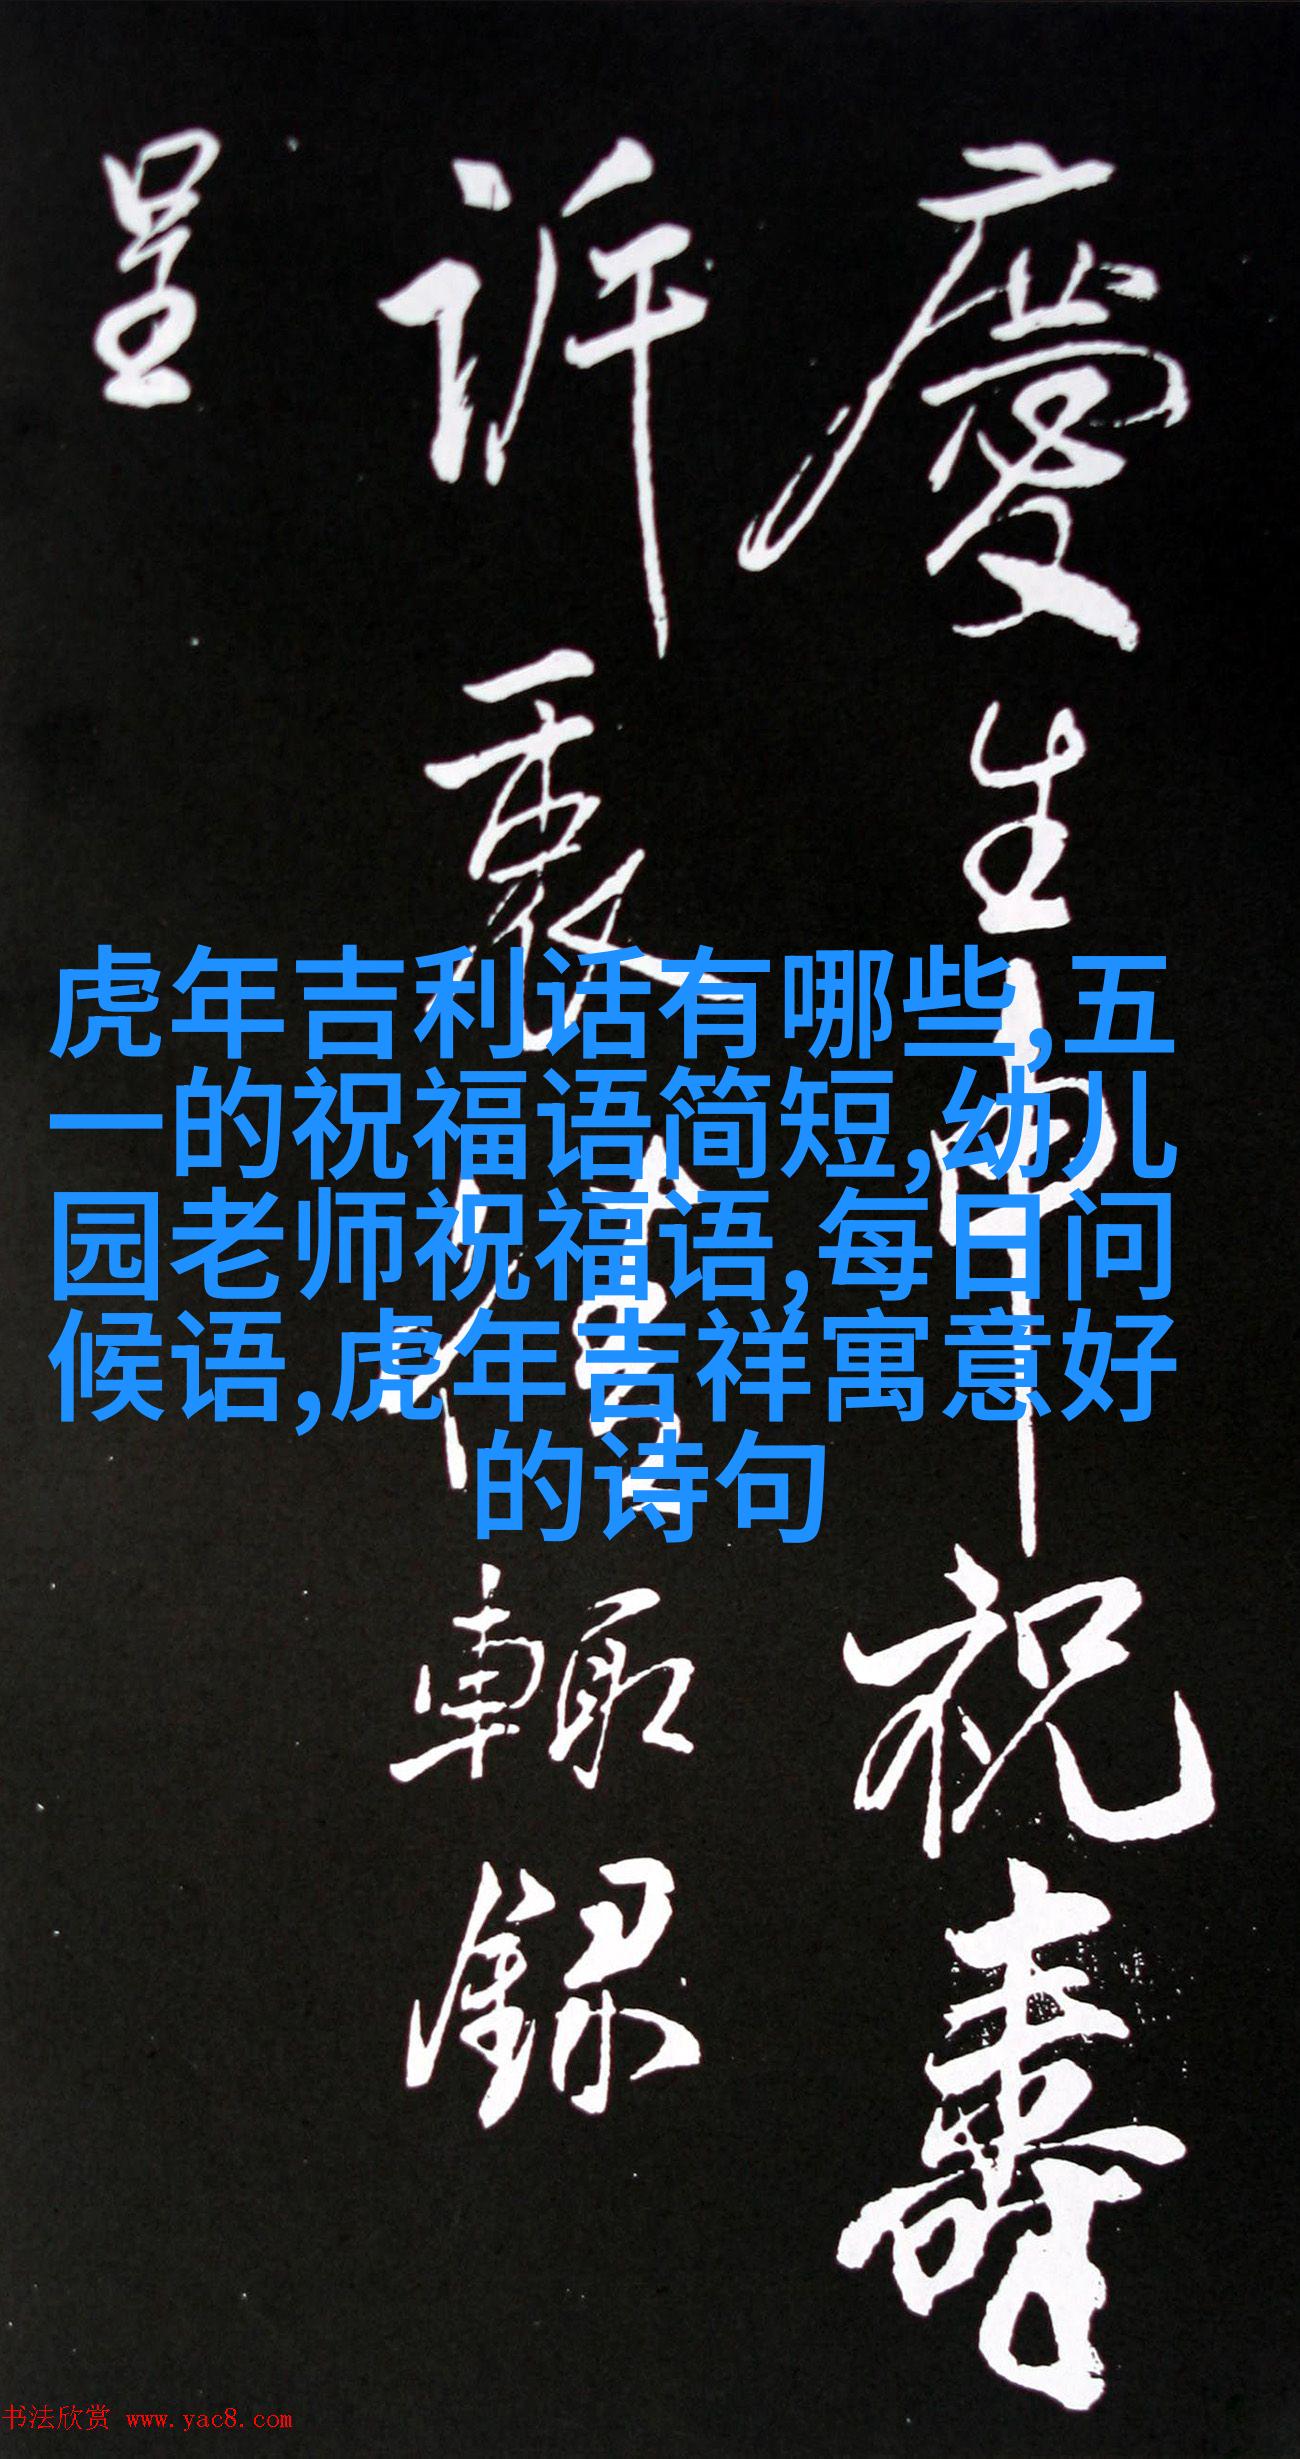 慶生申祝壽
訢裹
輙録
呈
虎年吉利话有哪些,五
一的祝福语简短,幼儿
园老师祝福语,每日问
候语,虎年吉祥寓意好
的诗句
书法欣赏 www.yac8.com